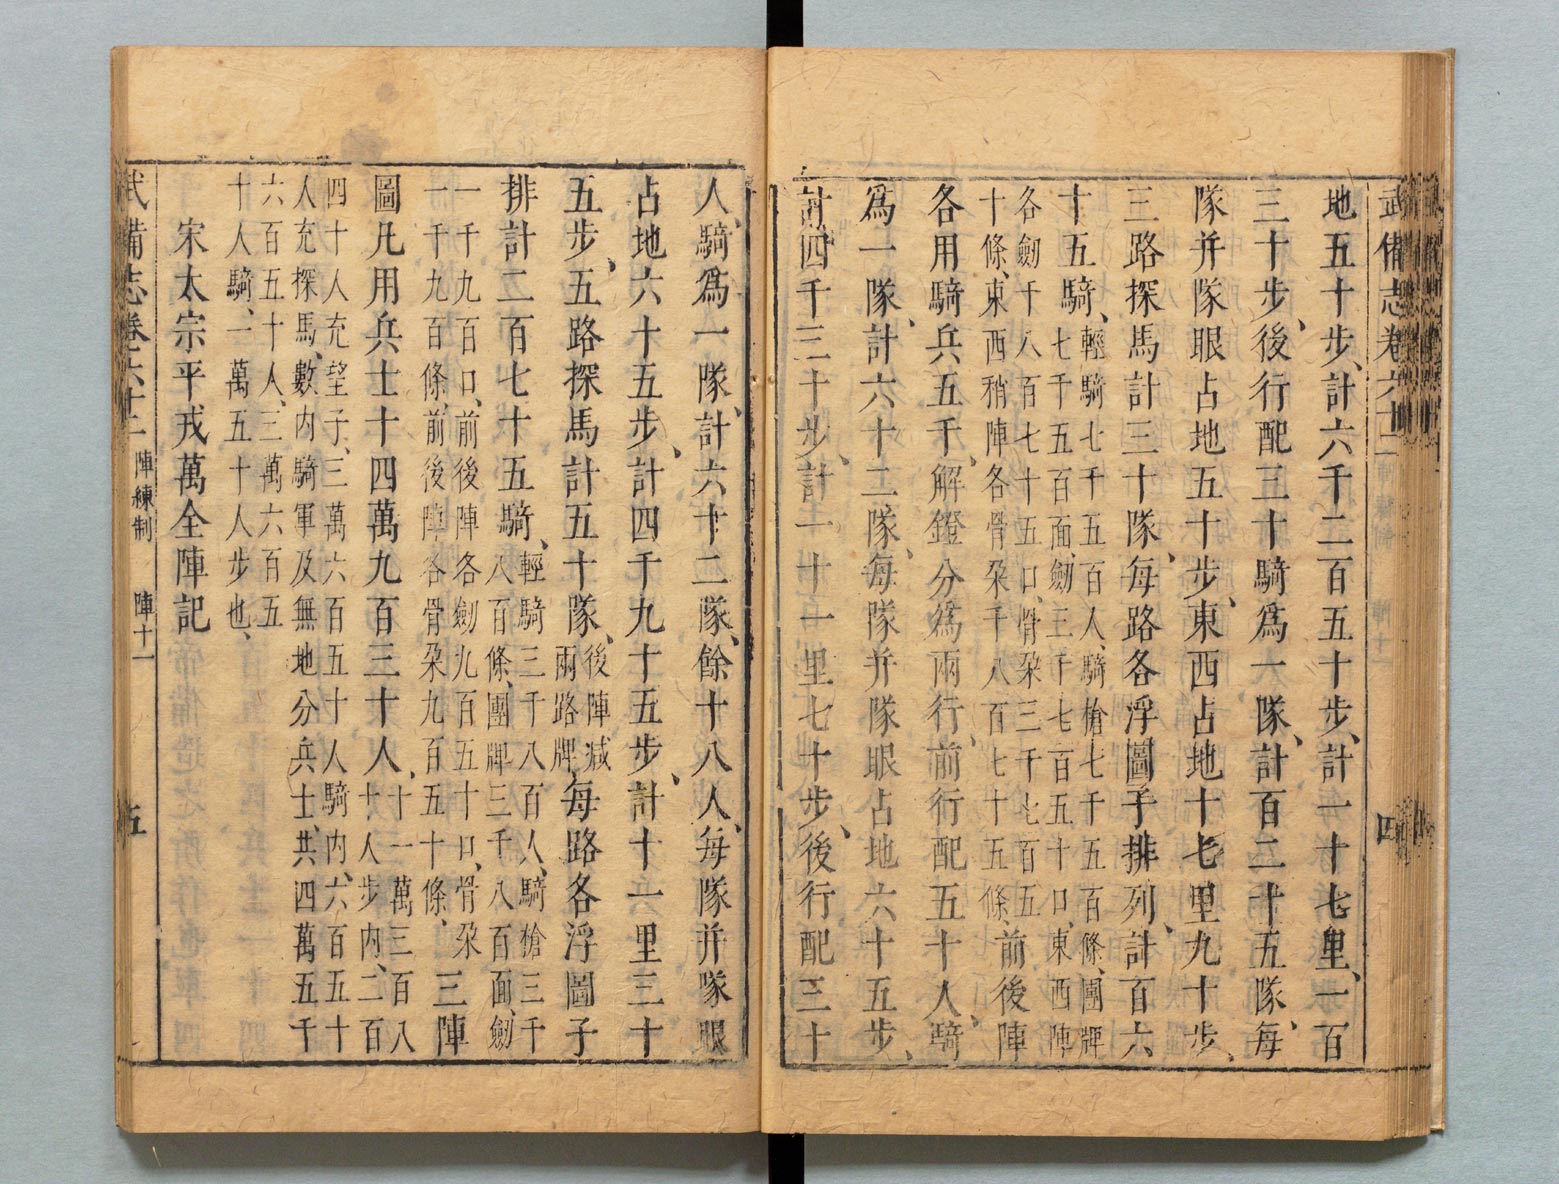 武備志卷六十二 四
地五十步、計六千二百五十步、計一十七里、一百
三十步、後行配三十騎爲一隊、計百二十五隊、每
隊并隊眼占地五十步、東西占地十七里九十步、
三路探馬計三十隊、每路各浮圖子排列、計百六
十五騎、輕騎七千五百人、騎槍七千五百條、團牌
七千五百面、劒三千七百五十口、東西陣
各劒千八百七十五口、骨朶三千七百五
十條、東西稍陣各骨朶千八百七十五條、前後陣
各用騎兵五千、解鐙分爲兩行、前行配五十人、騎
爲一隊、計六十二隊、每隊并隊眼占地六十五步、
計四千三十步、計一十一里七十步、後行配三十
人、騎爲一隊、計六十二隊、餘十八人、每隊并隊眼
占地六十五步、計四千九十五步、計十一里三十
五步、五路探馬計五十隊、後陣减兩路牌每路各浮圖子
排計二百七十五騎、輕騎三千八百人、騎槍三千
八百條、團牌三千八百面、劒
一千九百口、前後陣各劒九百五十口、骨朶
一千九百條、前後陣各骨朶九百五十條、三陣
圖凡用兵士十四萬九百三十人、十一萬三百八
十人步內、二百
四十人充望子、三萬六百五十人騎內、六百五十
人充探馬、數內騎軍及無地分兵士、共四萬五千
六百五十人、三萬六百五
十人騎、一萬五十人步也、
宋太宗平戎萬全陣記
武備志卷六十二 陣練制 陣十一 五